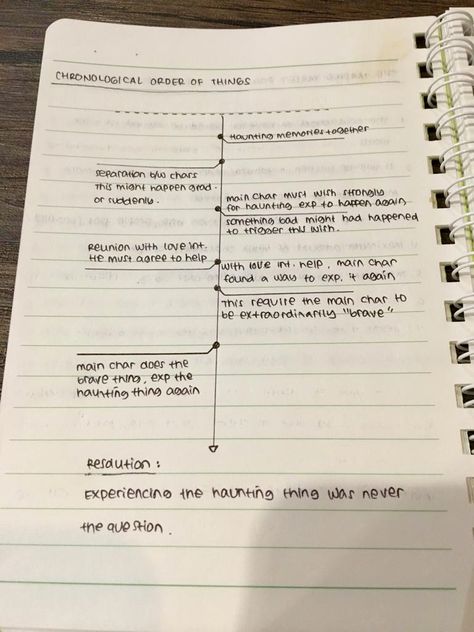 CHRONOLOGICAL ORDER OF THINGS
Haunting memories together
separation b/w chars
this might happen grad.
or suddenly.
main char must wish strongly
for haunting exp to happen again
something bad might had happened
to trigger this wish.
Reunion with love int.
He must agree to help
with love int. help, main char
found a way to exp. it again
This require the main char to
be extraordinarily "brave"
main char does the
brave thing, exp the
haunting thing again
Resolution:
Experiencing the haunting thing was never
the question.